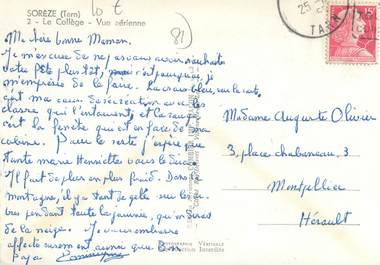 SORÈZE (Tarn)
2 - Le Collège - Vue aérienne
10 €
81
25
TARN
15F
Ma bien bonne Maman.
Je m'excuse de ne pas vous avoir souhaité
votre fête plus tôt, c'est pourquoi, je
m'empresse de la faire. La croix bleue, sur la carte,
ont ma cour de récréation avec les
classes qui l'entourent et la rouge
c'est la fenêtre qui est en face de ma
cabine. Pour le reste j'espère que
tante marie Henriette vous le dira.
Il fait de plus en plus froid. Dans la
montagne, il y a tant de gelée sur les
pendant toute la journée, qu'on croirait
de la neige. Je vous embrasse
affectueusement ainsi que bon
Papa
Madame Auguste Olivier
3, place chabaneau, 3
Montpellier
Hérault
PHOTOGRAPHIE VÉRITABLE
Reproduction Interdite